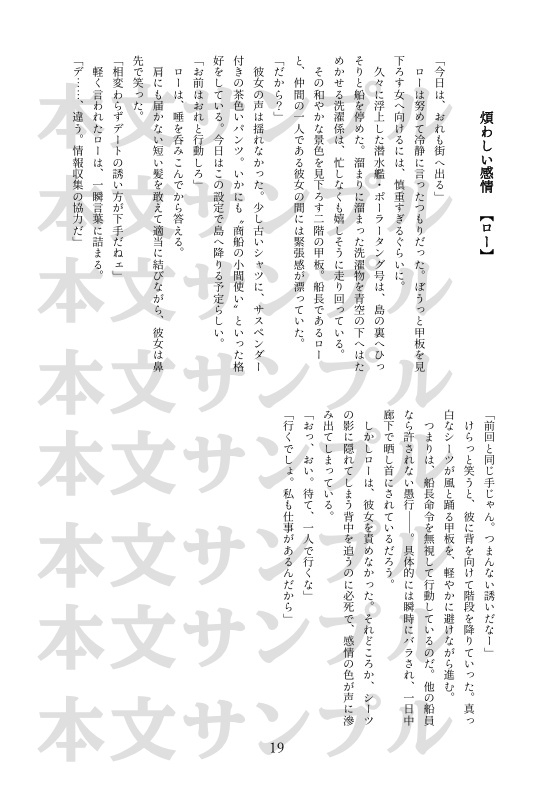 煩わしい感情　【ロー】
「今日は、おれも街へ出る」
　ローは努めて冷静に言ったつもりだった。ぼうっと甲板を見
下ろす女へ向けるには、慎重すぎるぐらいに。
　久々に浮上した潜水艦・ポーラータング号は、島の裏へひっ
そりと船を停めた。溜まりに溜まった洗濯物を青空の下へはた
めかせる洗濯係は、忙しなくも嬉しそうに走り回っている。
　その和やかな景色を見下ろす二階の甲板。船長であるロー
と、仲間の一人である彼女の間には緊張感が漂っていた。
「だから？」
　彼女の声は揺れなかった。少し古いシャツに、サスペンダー
付きの茶色いパンツ。いかにも〝商船の小間使い〟といった格
好をしている。今日はこの設定で島へ降りる予定らしい。
「お前はおれと行動しろ」
　ローは、唾を呑みこんでから答える。
　肩にも届かない短い髪を敢えて適当に結びながら、彼女は鼻
先で笑った。
「相変わらずデートの誘い方が下手だねェ」
　軽く言われたローは、一瞬言葉に詰まる。
「デ……、違う。情報収集の協力だ」
「前回と同じ手じゃん。つまんない誘いだなー」
　けらっと笑うと、彼に背を向けて階段を降りていった。真っ
白なシーツが風と踊る甲板を、軽やかに避けながら進む。
　つまりは、船長命令を無視して行動しているのだ。他の船員
なら許されない愚行――。具体的には瞬時にバラされ、一日中
廊下で晒し首にされているだろう。
　しかしローは、彼女を責めなかった。それどころか、シーツ
の影に隠れてしまう背中を追うのに必死で、感情の色が声に滲
み出てしまっている。
「おっ、おい。待て、一人で行くな」
「行くでしょ。私も仕事があるんだから」
本文サンプル
本文サンプル
本文サンプル
本文サンプル
本文サンプル
本文サンプル
本文サンプル
本文サンプル
19